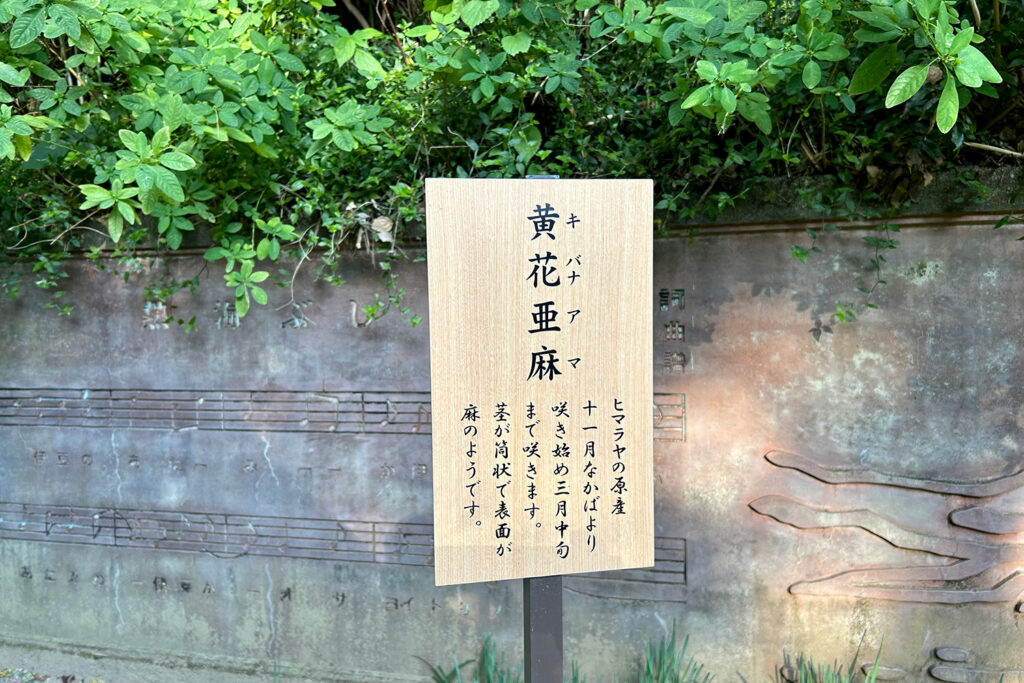 黄花亜麻
キバナアマ
ヒマラヤの原産
十一月なかばより
咲き始め三月中旬
まで咲きます。
茎が筒状で表面が
麻のようです。